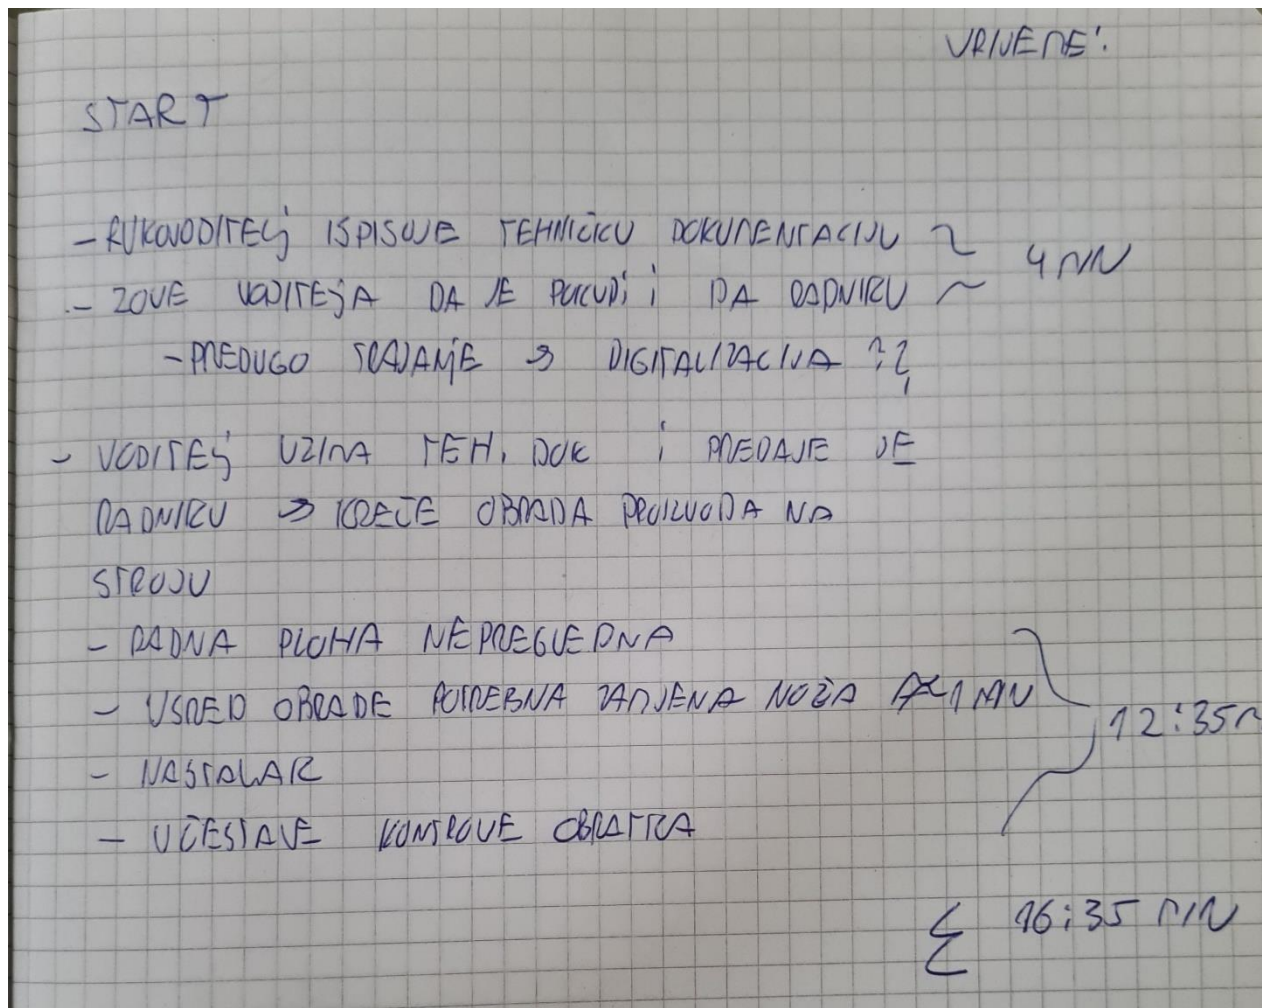 VRIJEME:
START
- RUKOVODITELJ ISPISUJE TEHNIČKU DOKUMENTACIJU
- ZOVE VODITELJA DA JE POKUPI I DA RADNIKU ~ 4 MIN
- PREDUGO TRAJANJE → DIGITALIZACIJA ??
- VODITELJ UZIMA TEH. DOK I PREDAJE JE
RADNIKU → KREĆE OBRADA PROIZVODA NA
STROJU
- RADNA PLOHA NEPREGLEDNA
- USRED OBRADE POTREBNA ZAMJENA NOŽA 1 MIN
12:35
-
- UČESTALE KONTROLE OBRATKA
Σ 16:35 MIN